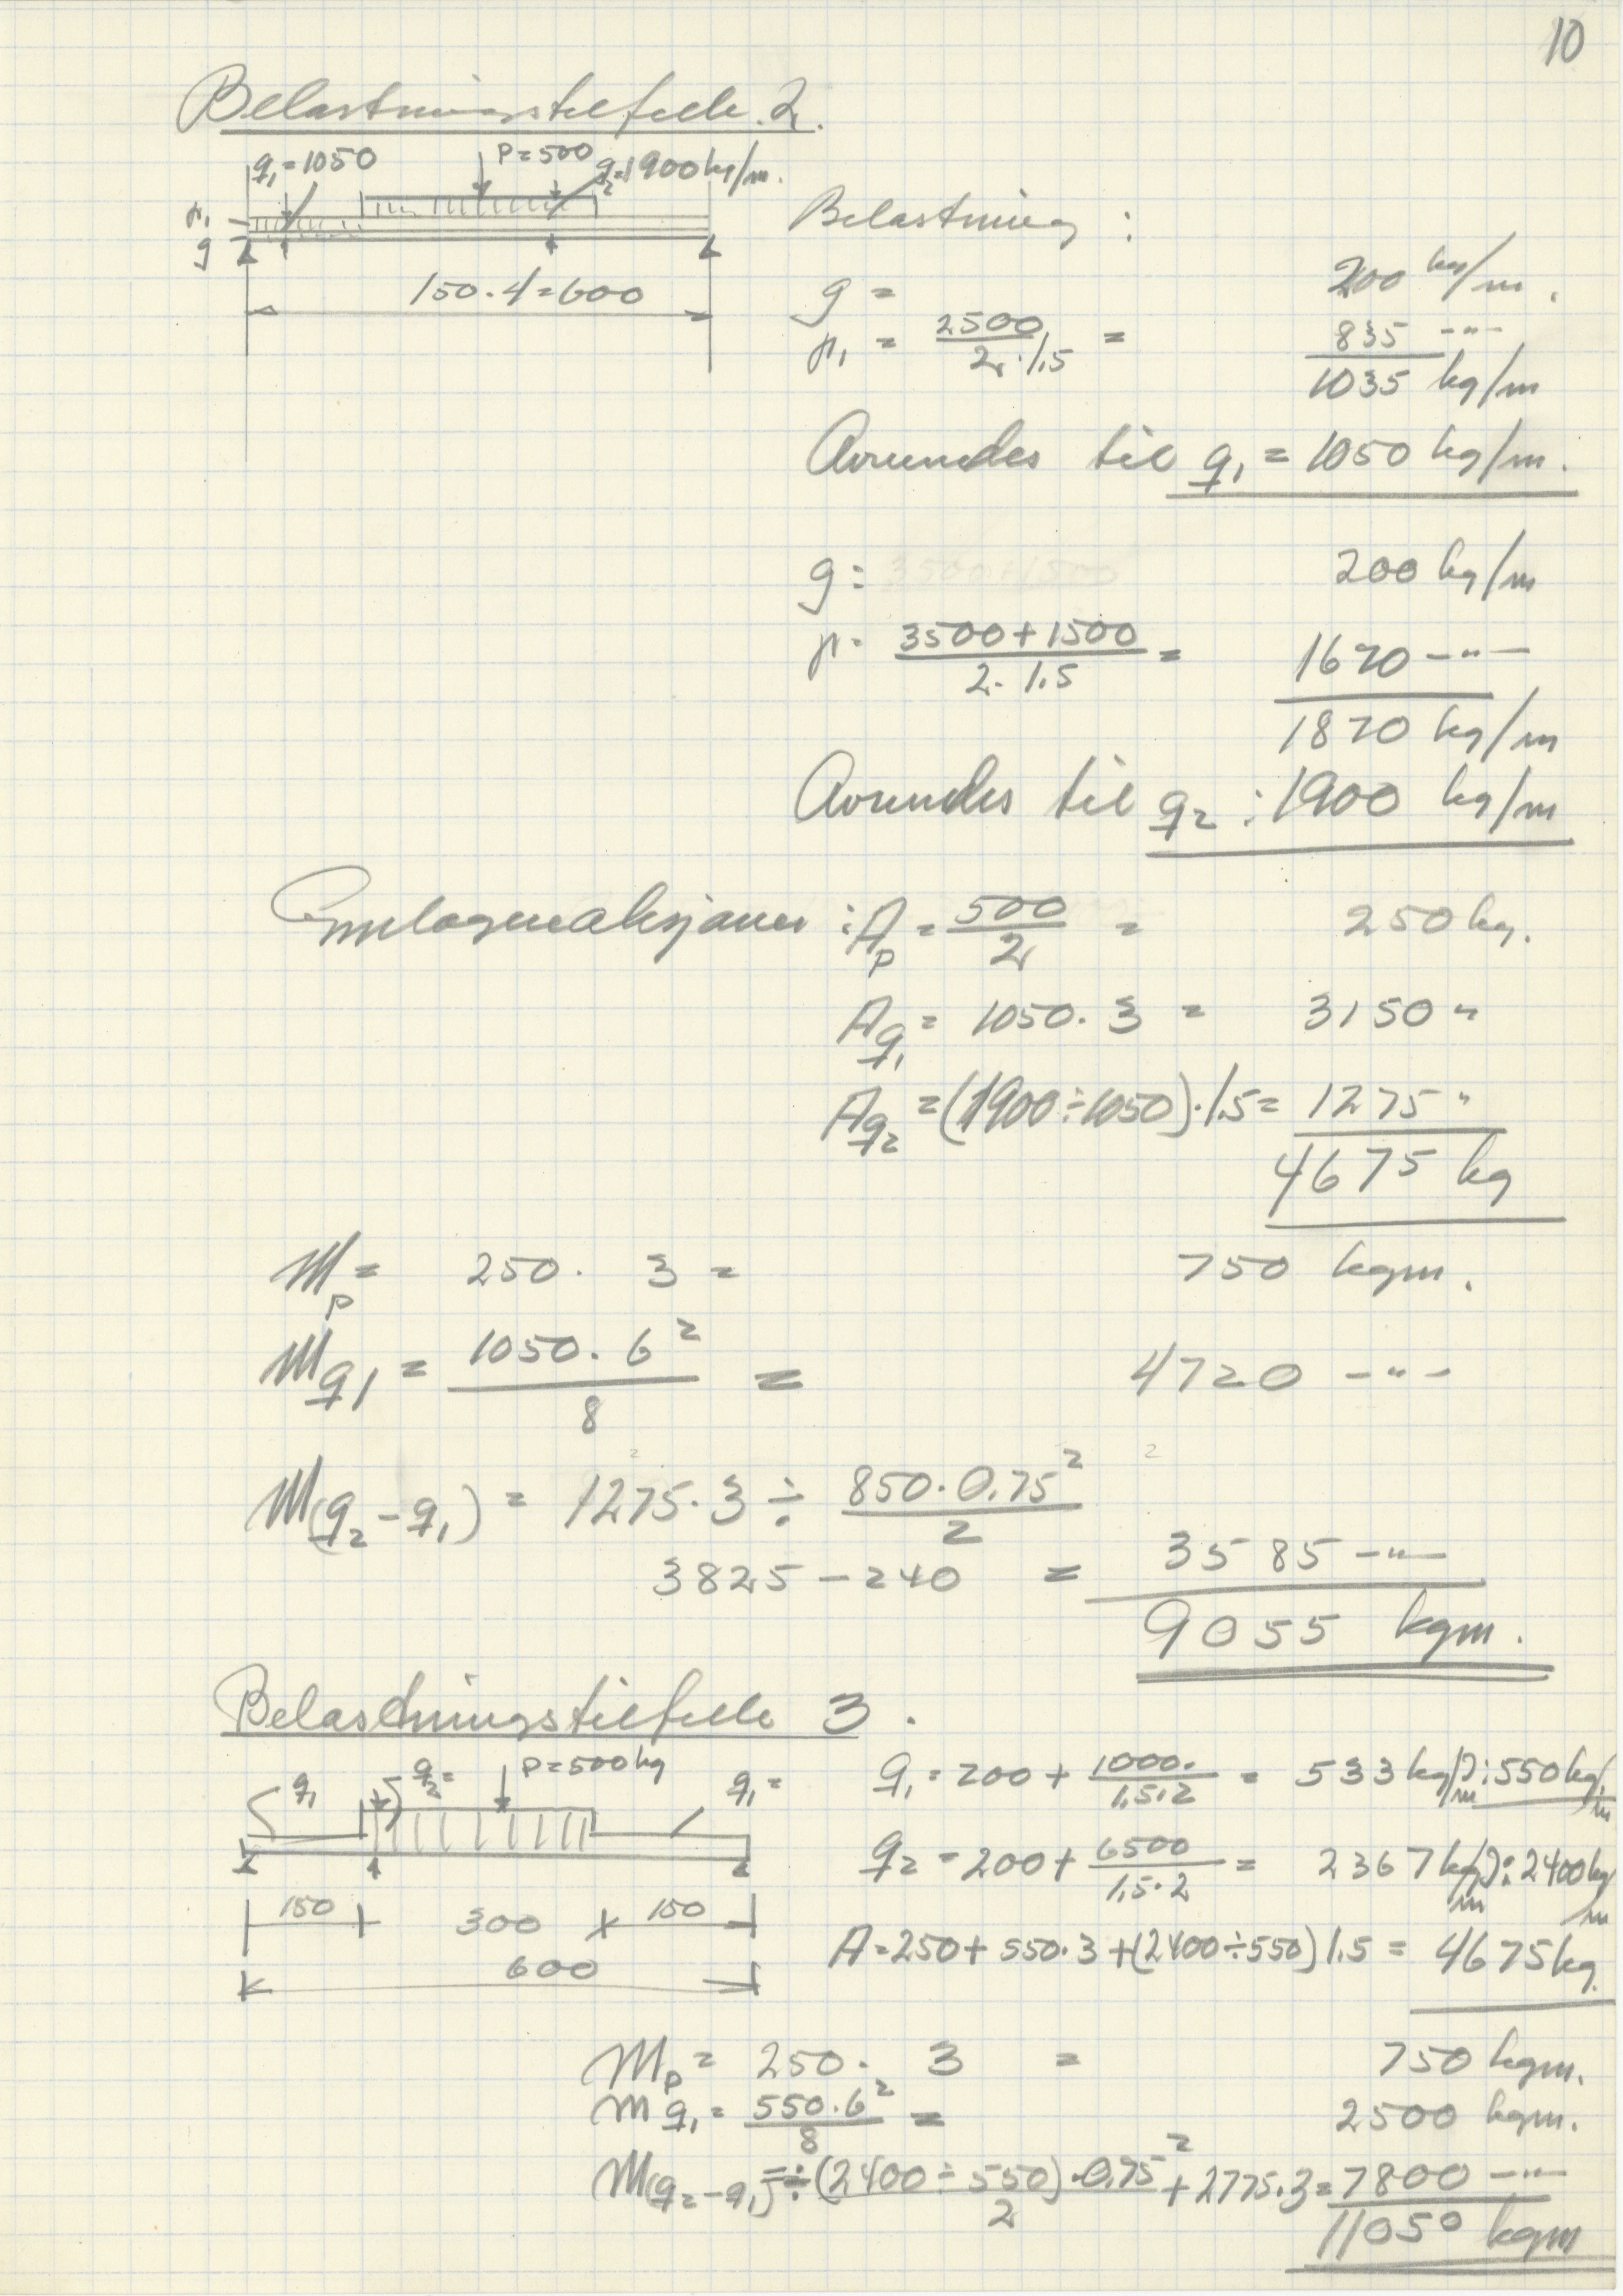 10
Belastningstilfelle 2.
q₁ = 1050 P = 500 q₂ = 1900 kg/m.
p₁
g
150·4 = 600
Belastning :
g = 200 kg/m.
p₁ = 2500 / 2·1.5 = 835 -"-
1035 kg/m
Avrundes til q₁ = 1050 kg/m.
g: 3500+1500 200 kg/m
p = 3500 + 1500 / 2·1.5 = 1670 -"-
1870 kg/m
Avrundes til q₂ : 1900 kg/m
: A_P = 500 / 2 = 250 kg.
A_q₁ = 1050·3 = 3150 "
A_q₂ = (1900 ÷ 1050)·1.5 = 1275 "
4675 kg
M_P = 250· 3 = 750 kgm.
M_q₁ = 1050·6² / 8 = 4720 -"-
M(q₂-q₁) = 1275·3 ÷ 850·0.75² / 2
3825 - 240 = 3585 -"-
9055 kgm.
Belastningstilfelle 3.
q₁ q₂ = P = 500 kg q₁ =
150 300 150
600
q₁ = 200 + 1000. / 1.5·2 = 533 kg/m ): 550 kg/m
q₂ = 200 + 6500 / 1.5·2 = 2367 kg/m ): 2400 kg/m
A = 250 + 550·3 + (2400 ÷ 550) 1.5 = 4675 kg.
M_P = 250· 3 = 750 kgm.
M q₁ = 550·6² / 8 = 2500 kgm.
M(q₂-q₁) = ÷ (2400 ÷ 550)·0.75² / 2 + 2775·3 = 7800 -"-
11050 kgm